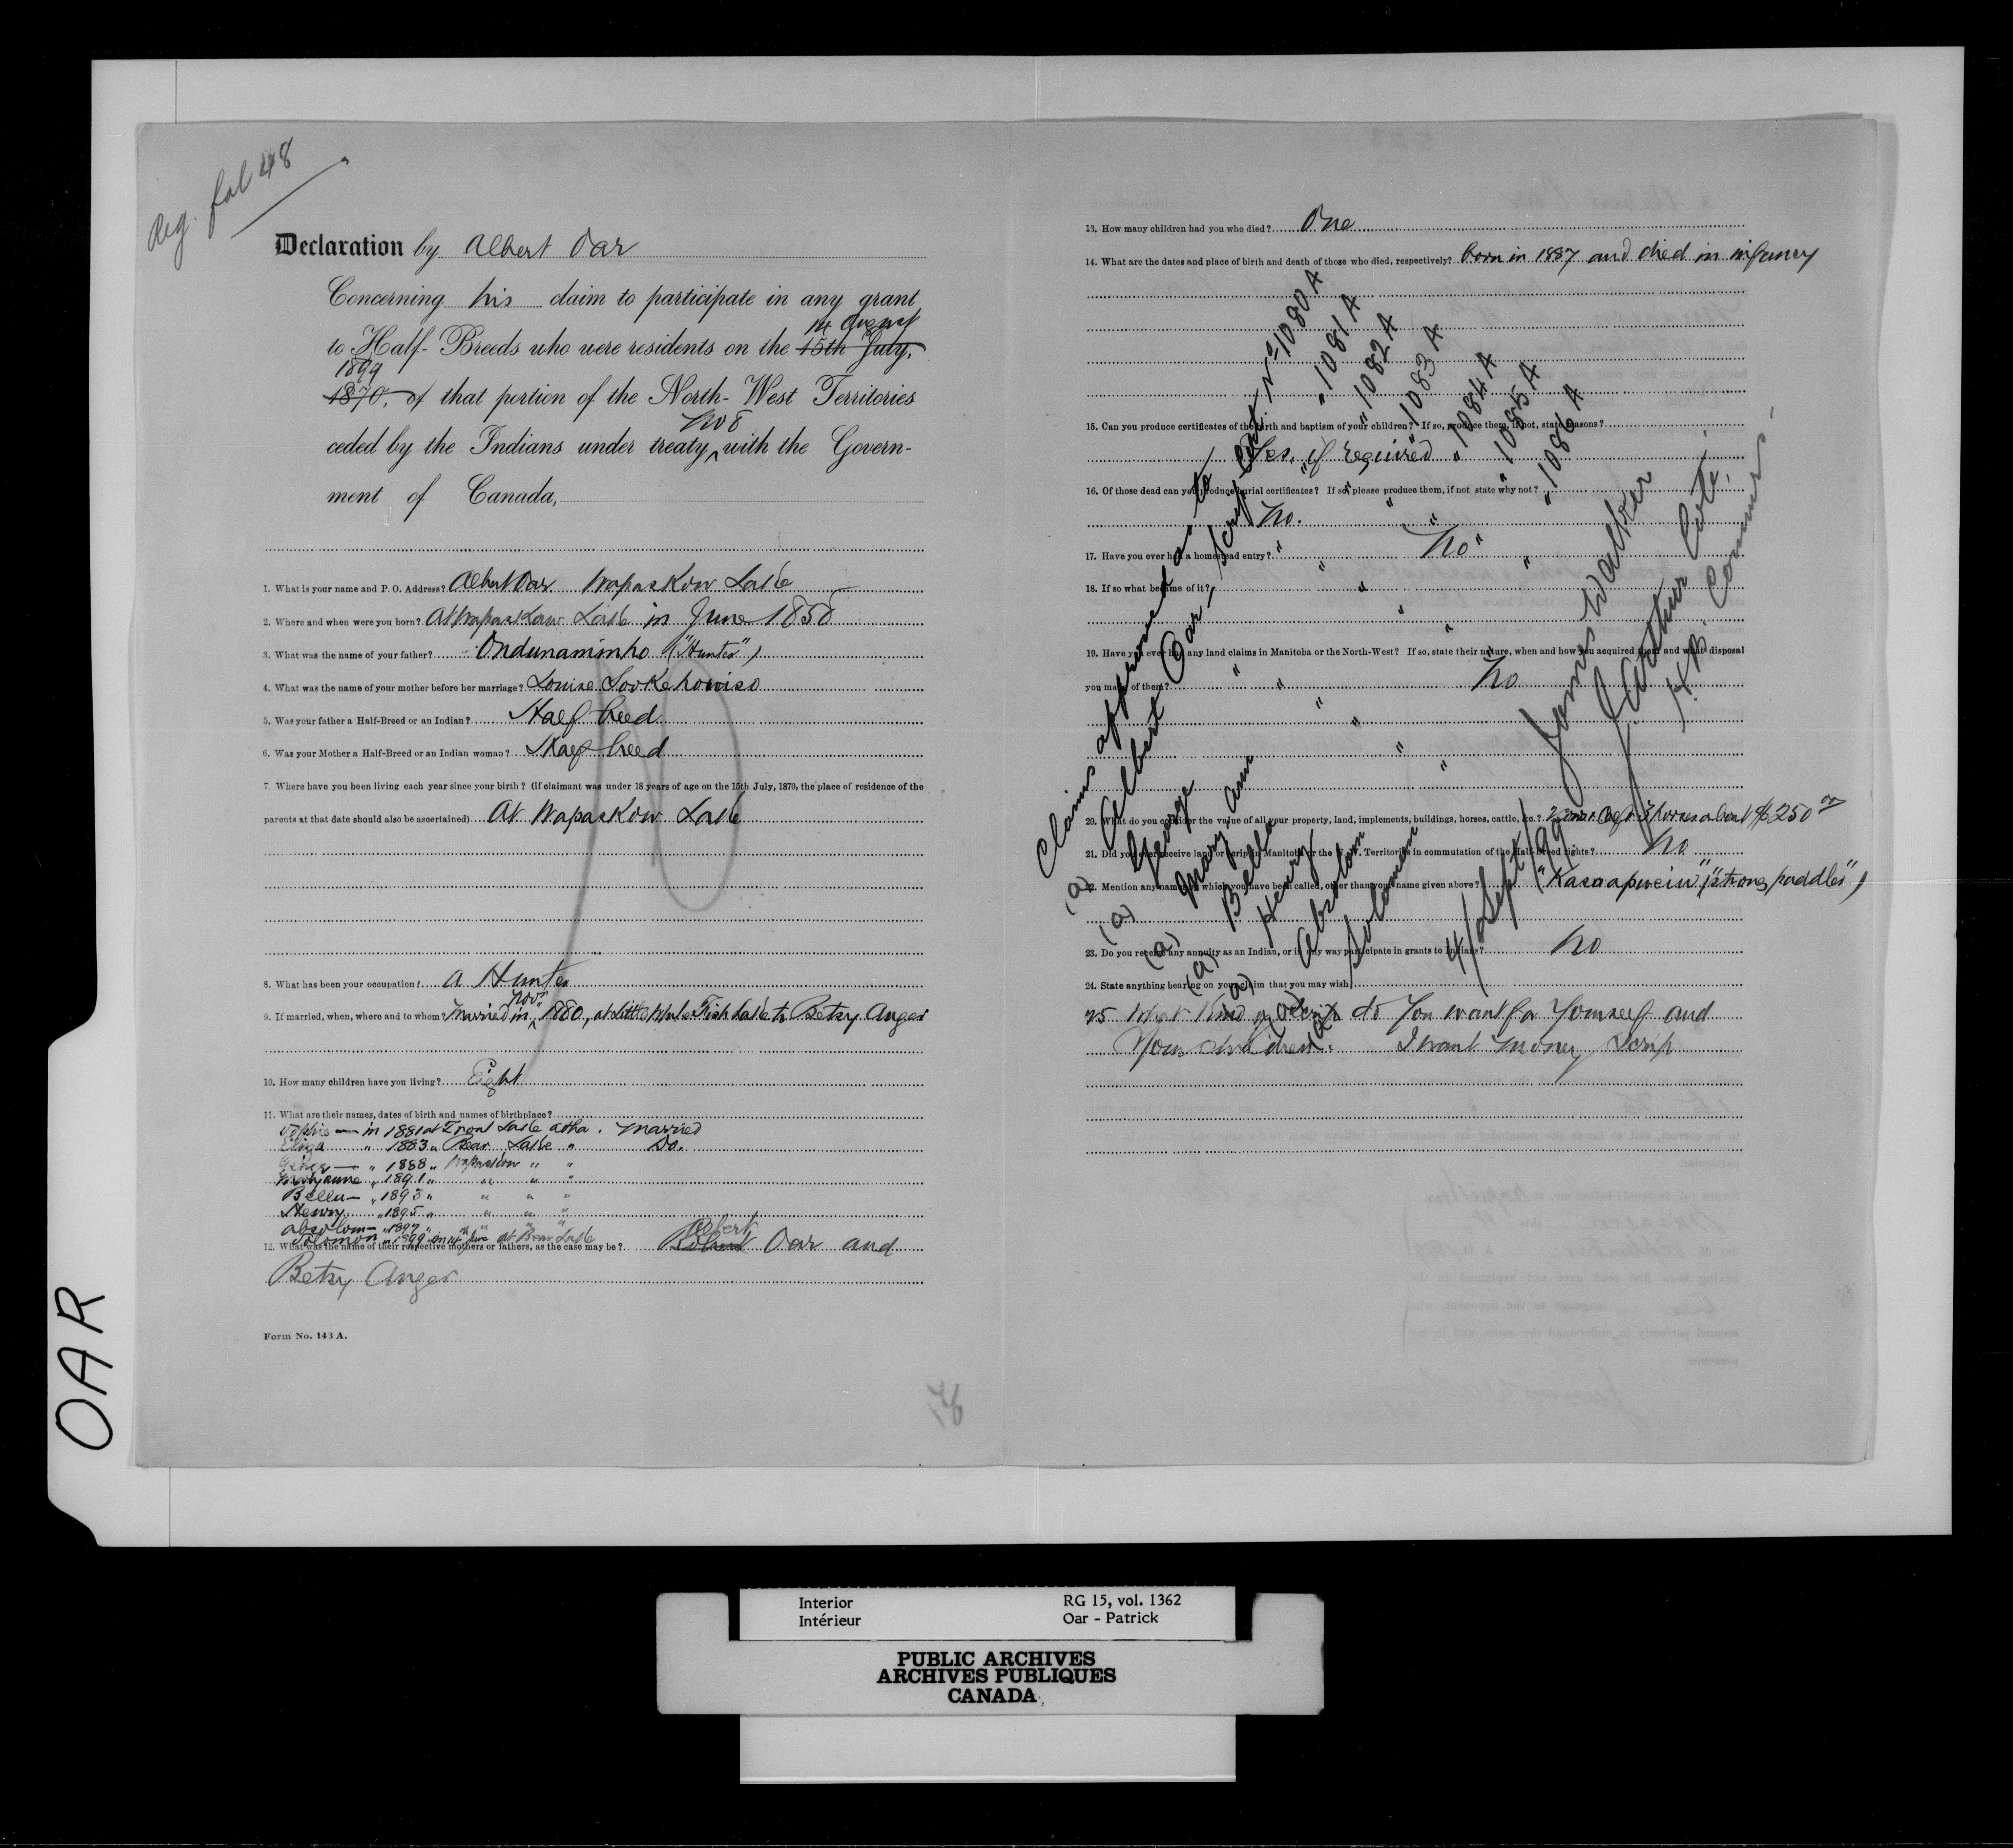 Reg. fol 48
Declaration by Albert Oar
Concerning his claim to participate in any grant
14 August
to Half-Breeds who were residents on the 15th July,
1899
1870, of that portion of the North-West Territories
No 8
ceded by the Indians under treaty, with the Govern-
ment of Canada,
1. What is your name and P. O. Address? Albert Oar Wapaskow Lake
2. Where and when were you born? At Wapaskow Lake in June 1858
3. What was the name of your father? Ondunaminho ("Hunter")
4. What was the name of your mother before her marriage? Louise
5. Was your father a Half-Breed or an Indian? Half breed
6. Was your Mother a Half-Breed or an Indian woman? Half breed
7. Where have you been living each year since your birth? (if claimant was under 18 years of age on the 15th July, 1870, the place of residence of the
parents at that date should also be ascertained) At Wapaskow Lake
8. What has been your occupation? A Hunter
Novr
9. If married, when, where and to whom? Married in 1880, at Little White Fish Lake to Betsy Anger
10. How many children have you living? Eight
11. What are their names, dates of birth and names of birthplace?
Sophie — in 1881 at Trout Lake Atha. Married
Eliza " 1883 " Bear Lake " Do.
George — " 1888 " Wapaskow " "
Maryanne " 1891 " " " "
Bella — " 1893 " " " "
Henry " 1895 " " " "
Absolom — " 1897 " " " "
Solomon " 1899 June at Bear Lake
Albert
12. What was the name of their respective mothers or fathers, as the case may be? Oar and
Betsy Anger
Form No. 143 A.
76
OAR
13. How many children had you who died? One
14. What are the dates and place of birth and death of those who died, respectively? born in 1887 and died in infancy
15. Can you produce certificates of the birth and baptism of your children? If so, produce them, if not, state reasons?
Yes. if required
16. Of those dead can you produce burial certificates? If so, please produce them, if not state why not?
No.
17. Have you ever had a homestead entry? No
18. If so what became of it?
19. Have you ever had any land claims in Manitoba or the North-West? If so, state their nature, when and how you acquired them and what disposal
you made of them? No
20. What do you consider the value of all your property, land, implements, buildings, horses, cattle, &c.? 3 horses about $250 00
21. Did you ever receive land or scrip in Manitoba or the N. W. Territories in commutation of the Half-Breed rights? No
22. Mention any names by which you have been called, other than your name given above? "Kasaapwein" ("strong paddler")
23. Do you receive any annuity as an Indian, or in any way participate in grants to Indians? No
24. State anything bearing on your claim that you may wish
25 What kind of scrip do you want for yourself and
your children. I want money scrip
Claims approved as to
Albert Oar, scrip cert. No 1080 A
(a) George " " " 1081 A
(a) Mary Ann " " " 1082 A
(a) Bella " " " 1083 A
(a) Henry " " " 1084 A
(a) Absolom " " " 1085 A
(a) Solomon " " " 1086 A
4/Sept/99
James Walker
J. Arthur Coté,
H.B. Commrs -
Interior
Intérieur
RG 15, vol. 1362
Oar - Patrick
PUBLIC ARCHIVES
ARCHIVES PUBLIQUES
CANADA